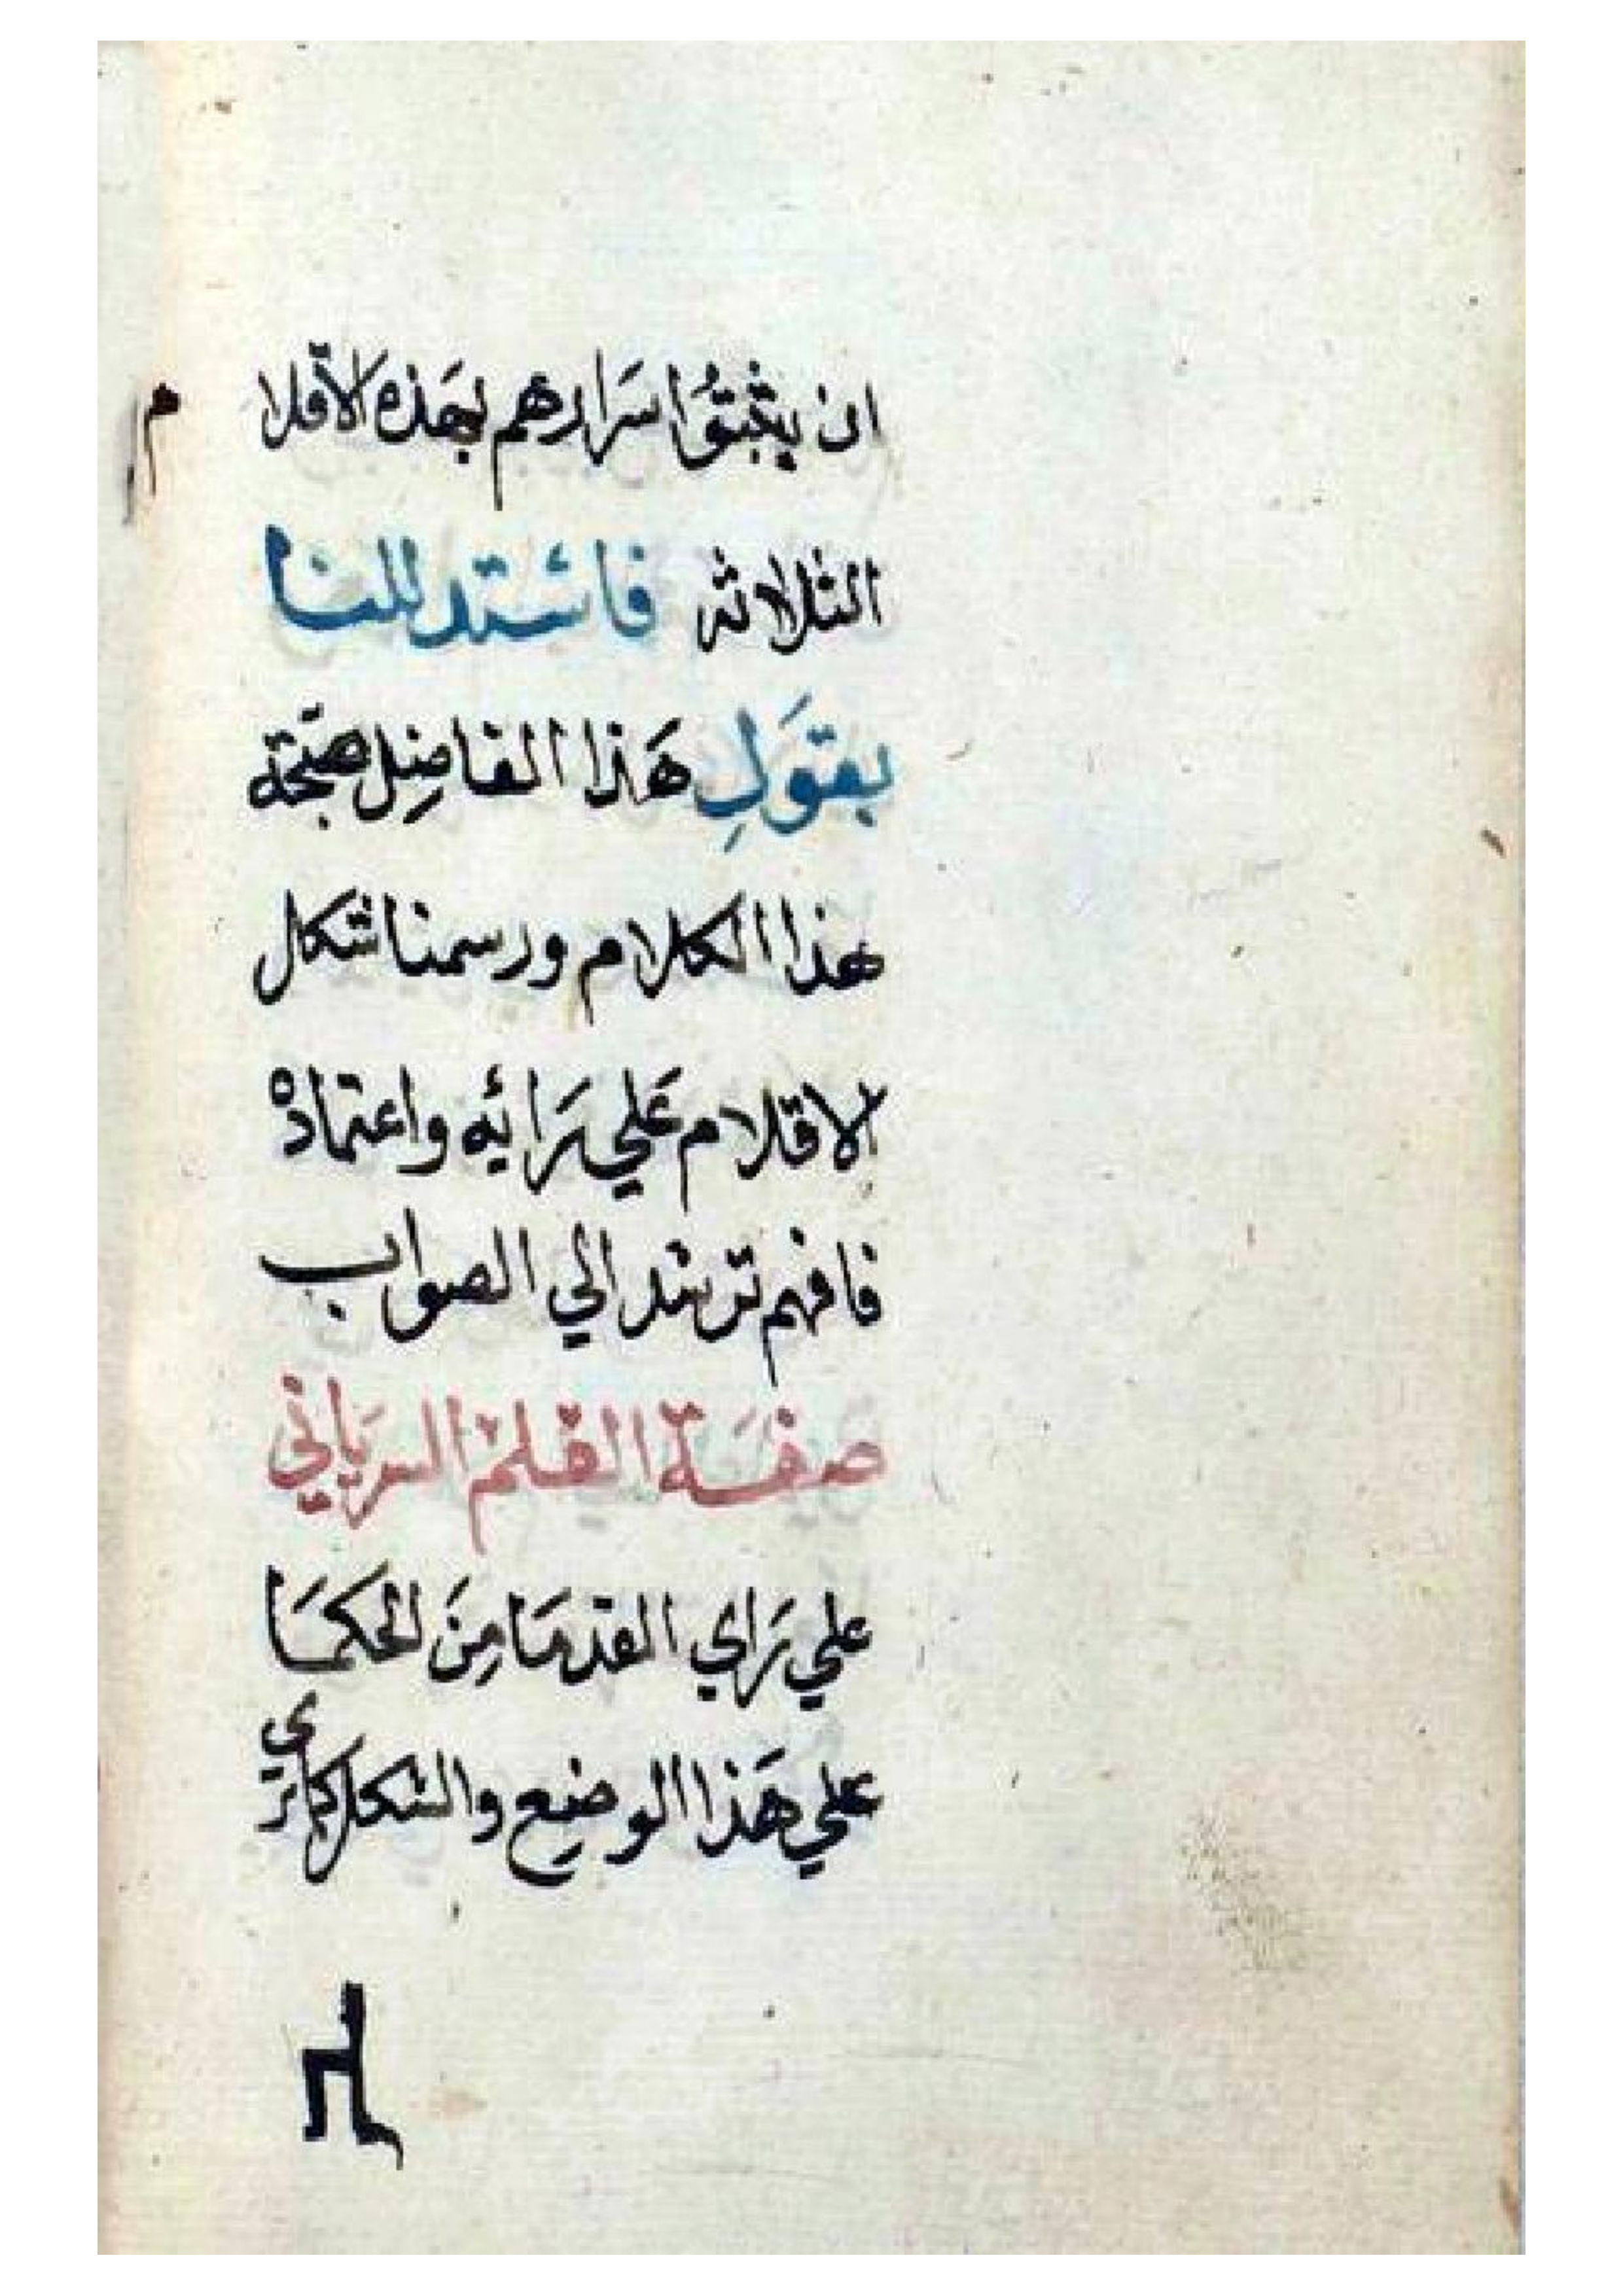 ان يثبتوُا سَرارهم بهَذه الاقلام
الثلاثه فاستدللنا
بقوَلِ هَذا الفاضِل صحّة
هذا الكلام ورسمنا شكل
الاقلام عَلي رَائيه واعتماده
فافهم ترشد الي الصواب
صفَة القلم السريَاني
علي رَاي القدمَا مِنَ الحكمَا
علي هَذا الوضِع والشكل كما تري